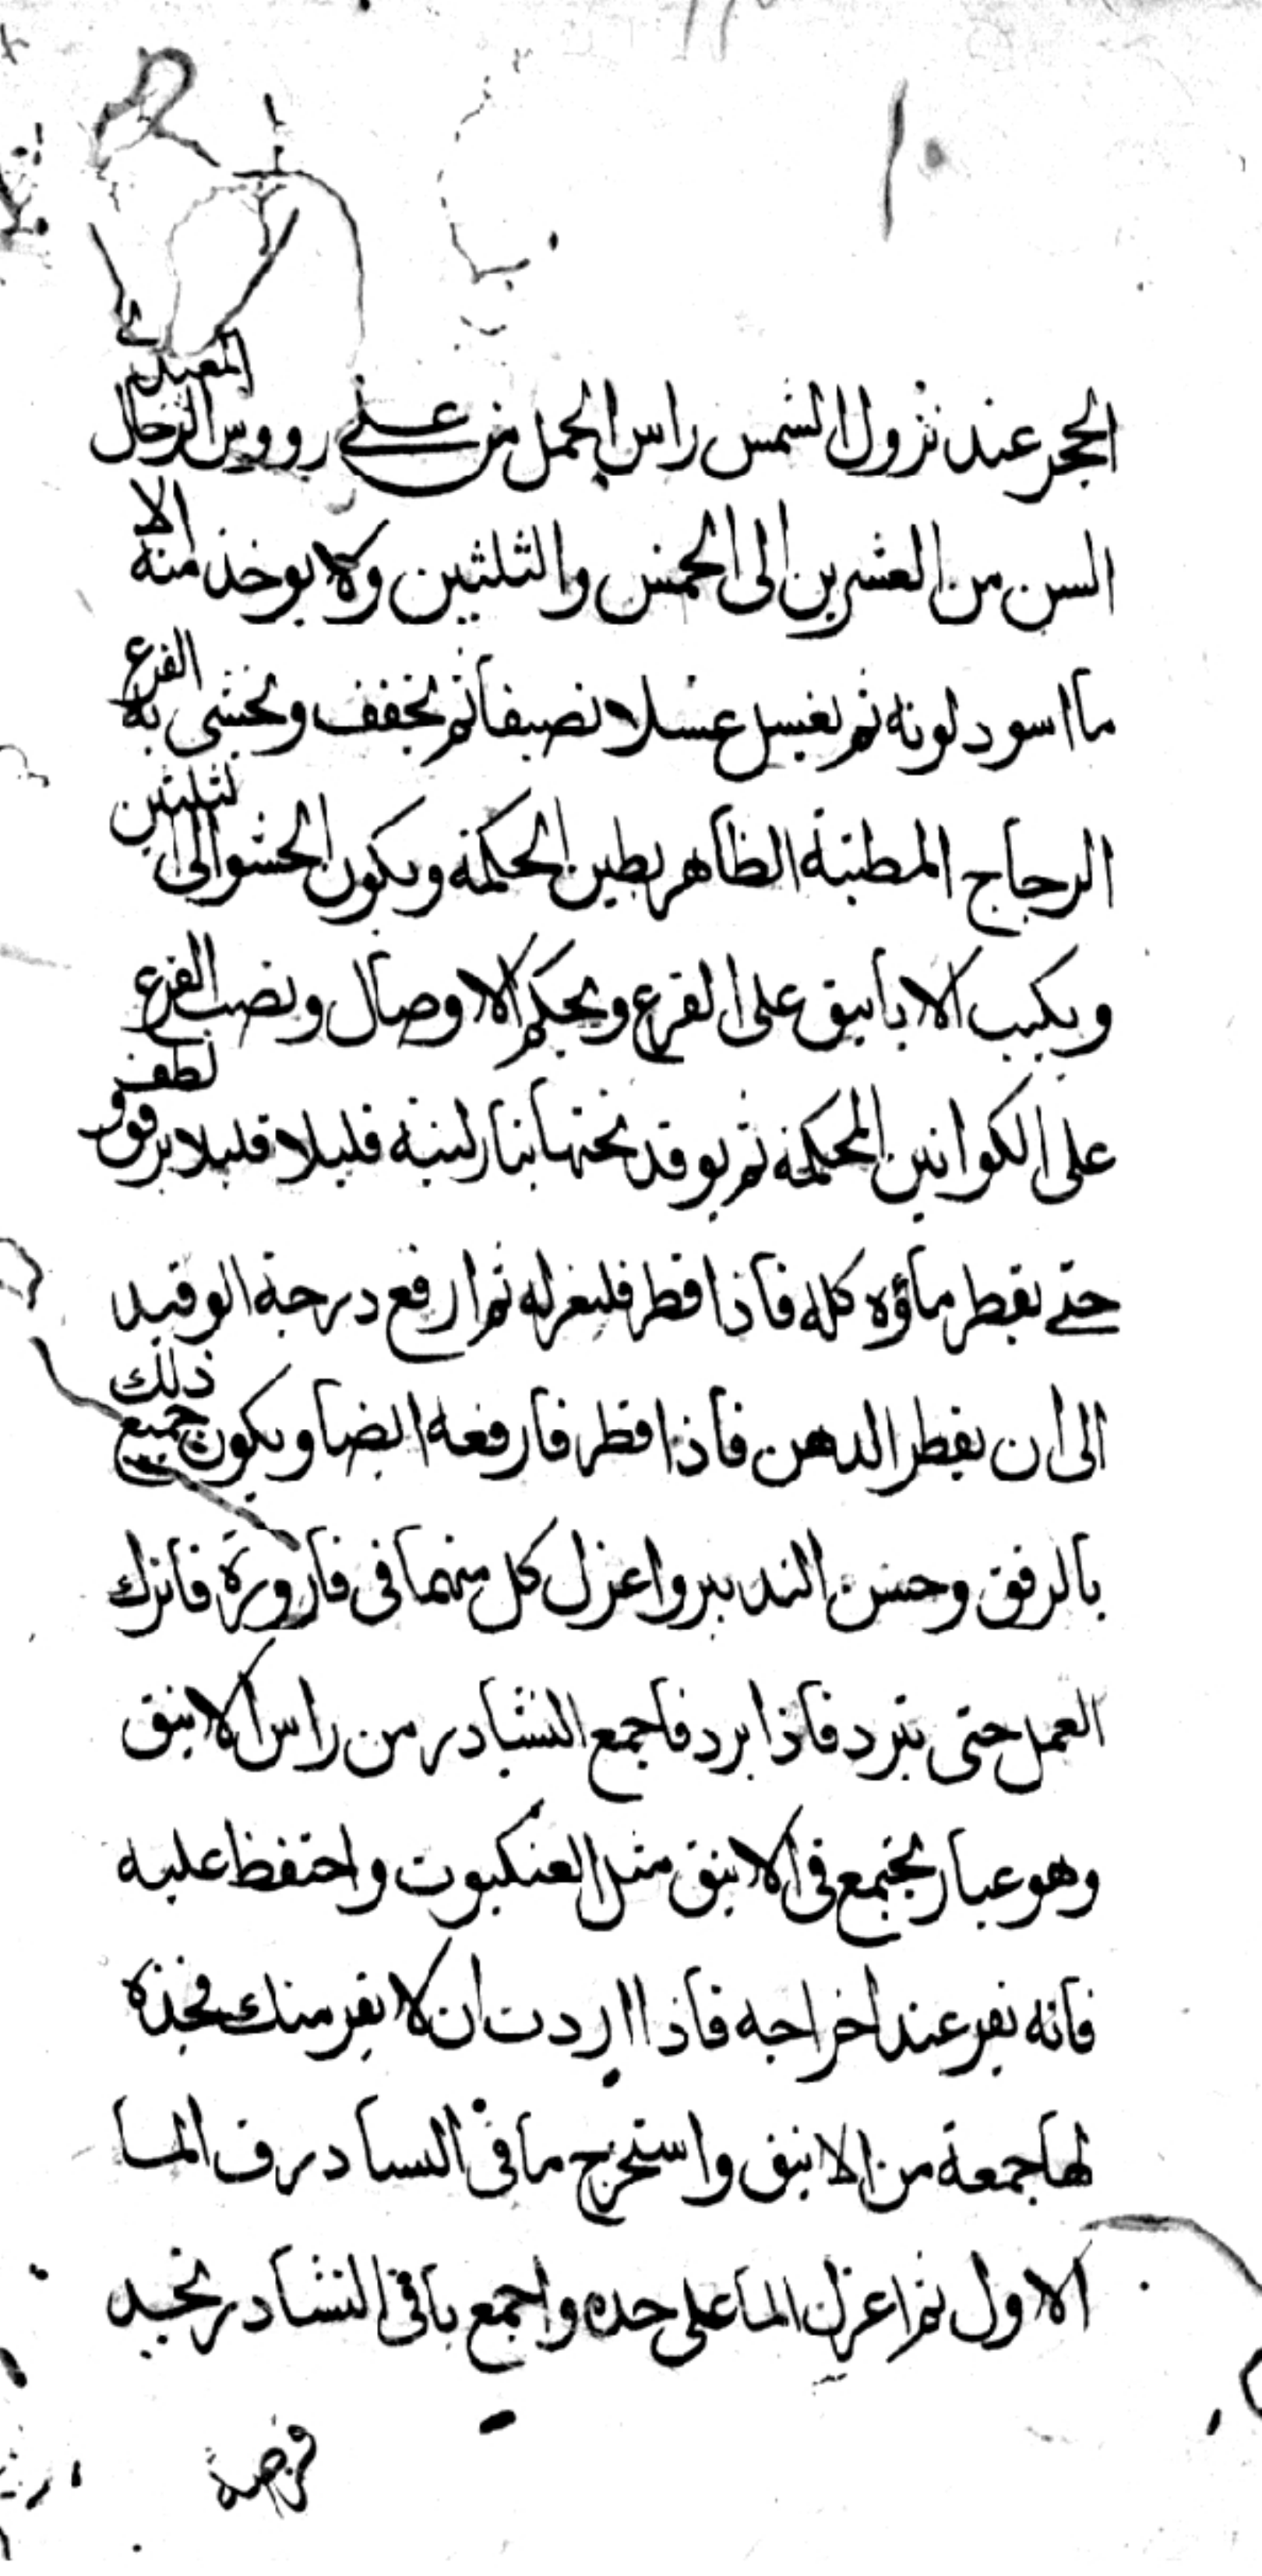 ١٠
الحجر عند نزول الشمس راس الحمل من على رووس الرجال المعتدلي
السن من العشرين الى الخمس والثلثين ولا يوخذ منه الا
ما اسود لونه ثم يغسل غسلا نضيفا ثم يجفف ويحشى به القرع
الزجاج المطينة الظاهر بطين الحكمة ويكون الحشو الى الثلثين
ويكبب الانابيق على القرع ويحكم الاوصال ونصب القرع
على الكوانين المحكمة ثم يوقد تحتها بنار لينة قليلا قليلا برفق ولطف
حتى يقطر ماؤه كله فاذا قطر فليعزله ثم ارفع درجة الوقيد
الى ان يقطر الدهن فاذا قطر فارفعه ايضا ويكون جميع ذلك
بالرفق وحسن التدبير واعزل كل منهما في قارورة فاترك
العمل حتى تبرد فاذا برد فاجمع النشادر من راس الانبق
وهو غبار يجتمع في الانبق مثل العنكبوت واحتفظ عليه
فانه يفر عند اخراجه فاذا اردت ان لا يفر منك فخذه
لها جمعة من الانبق واستخرج ما في النسادر ف الما
الاول ثم اعزل الما على حده واجمع باقي النشادر تجد